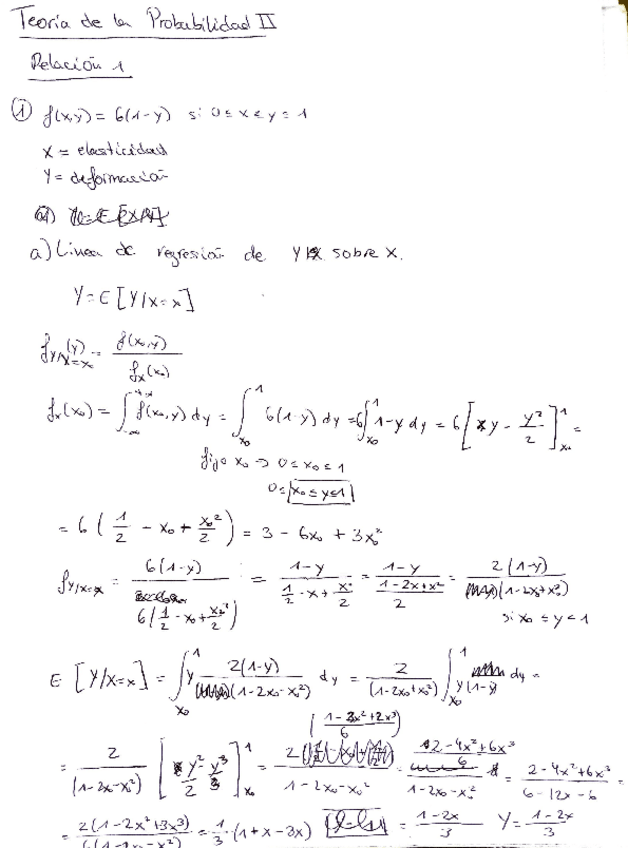 Teoría de la Probabilidad II
Relación 1
① f(x,y) = 6(1-y) si 0 ≤ x ≤ y ≤ 1
X = elasticidad
Y = deformación
a) Línea de regresión de Y sobre X.
Y = E [Y/X=x]
f_{Y/X=x₀}(y) = f(x₀,y) / f_x(x₀)
f_x(x₀) = ∫_{-∞}^{+∞} f(x₀,y) dy = ∫_{x₀}^{1} 6(1-y) dy = 6∫_{x₀}^{1} 1-y dy = 6[y - y²/2]_{x₀}^{1} =
fijo x₀ → 0 ≤ x₀ ≤ 1
0 ≤ x₀ ≤ y ≤ 1
= 6(1/2 - x₀ + x₀²/2) = 3 - 6x₀ + 3x₀²
f_{Y/X=x} = 6(1-y) / 6(1/2 - x₀ + x₀²/2) = 1-y / (1/2 - x + x²/2) = 1-y / ((1-2x+x²)/2) = 2(1-y) / (1-2x₀+x₀²)
si x₀ ≤ y < 1
E [Y/X=x] = ∫_{x₀}^{1} y 2(1-y) / (1-2x₀-x₀²) dy = 2 / (1-2x₀+x₀²) ∫_{x₀}^{1} y(1-y) dy =
= 2 / (1-2x-x²) [y²/2 - y³/3]_{x₀}^{1} = 2((1-3x²+2x³)/6) / 1-2x₀-x₀² = (2-4x²+6x³)/6 / 1-2x₀-x² = 2-4x²+6x³ / 6-12x-6 =
= 2(1-2x²+3x³) / 6(1-2x-x²) = 1/3 · (1+x-3x) = 1-2x / 3 Y = 1-2x / 3